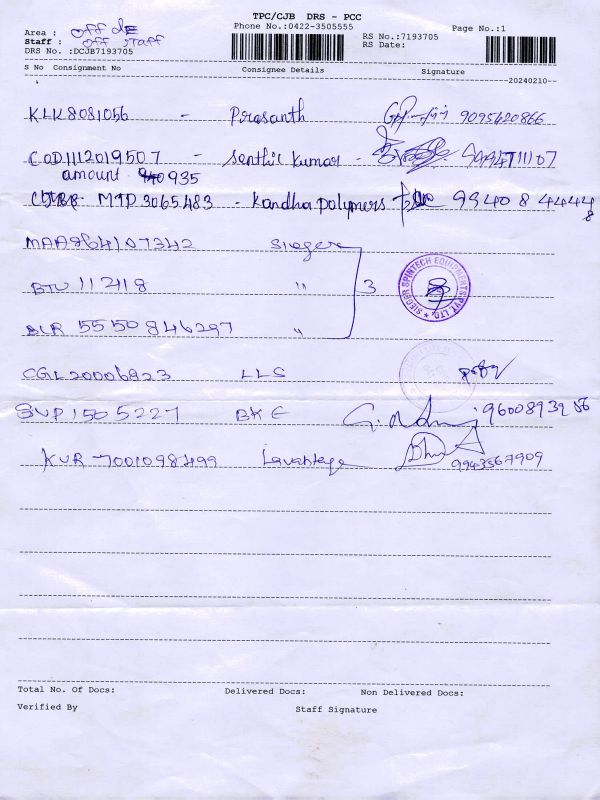 TPC/CJB DRS - PCC
Phone No.:0422-3505555
Page No.:1
Area : off de
Staff : off staff
RS No.:7193705
RS Date:
DRS No. :DCJB7193705
S No Consignment No Consignee Details Signature
20240210
KLK8081056 - Prasanth 9095620866
COD1112019507 - Senthil Kumar - 9994711107
amount 935
MTD3065483 - Kandha polymers 99408 44448
MAA864107342 Sieger
BTU 112418 "
3
SIEGER SPINTECH EQUIPMENTS PVT. LTD.
BLR 5550846297 "
CGL20006923 LLS
SVP1505227 BKE 9600893956
KUR 7001098499 9943567909
Total No. Of Docs: Delivered Docs: Non Delivered Docs:
Verified By Staff Signature